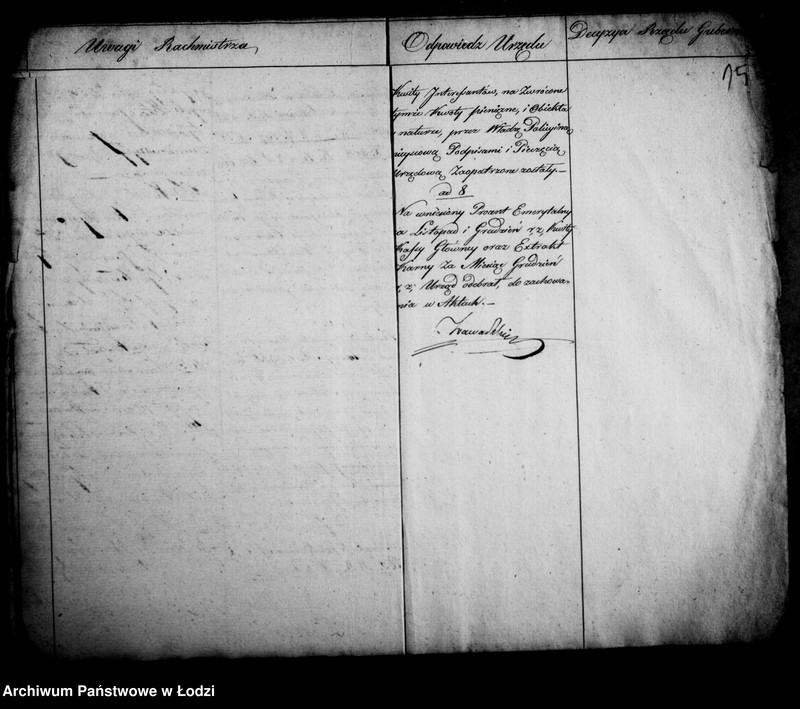 Uwagi Rachmistrza
Odpowiedz Urzędu
Decyzya Rządu Gubern
15
Kwity Interessantów, na Zwrócone
tymże Kwoty pieniężne, i Obiekta
naturze, przez Władzę Policyiną
mieyscową Podpisami i Pieczęcią
Urzędową Zaopatrzone zostały.—
ad 8
Na wniesiony Procent Emerytalny
a Listopad i Grudzień r. z. Kwity
Kassy Główney oraz Extrakt
Karny Za Miesiąc Grudzień
r. z. Urząd odebrał, do zachowa-
nia w Aktach.—
Zawadzki
Archiwum Państwowe w Łodzi